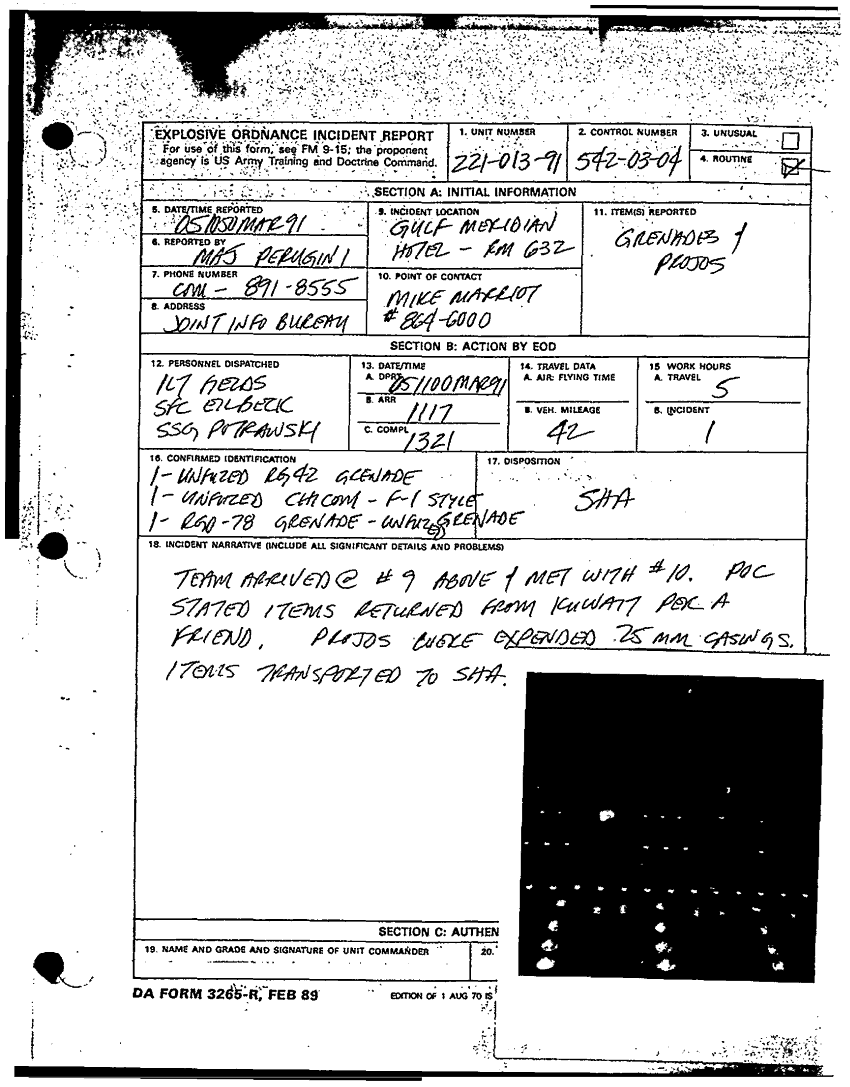 EXPLOSIVE ORDNANCE INCIDENT REPORT
For use of this form, see FM 9-15; the proponent
agency is US Army Training and Doctrine Command.
1. UNIT NUMBER
221-013-91
2. CONTROL NUMBER
542-03-04
3. UNUSUAL
4. ROUTINE
SECTION A: INITIAL INFORMATION
5. DATE/TIME REPORTED
051050MAR91
6. REPORTED BY
MAJ PERUGINI
7. PHONE NUMBER
COM - 891-8555
8. ADDRESS
JOINT INFO BUREAU
9. INCIDENT LOCATION
GULF MERIDIAN
HOTEL - RM 632
10. POINT OF CONTACT
MIKE MARRIOT
# 864-6000
11. ITEM(S) REPORTED
GRENADES &
PROJOS
SECTION B: ACTION BY EOD
12. PERSONNEL DISPATCHED
1LT FIELDS
SFC EILBECK
SSG POTRAWSKI
13. DATE/TIME
A. DPRT
051100MAR91
B. ARR
1117
C. COMPL
1321
14. TRAVEL DATA
A. AIR: FLYING TIME
B. VEH. MILEAGE
42
15 WORK HOURS
A. TRAVEL
5
B. INCIDENT
1
16. CONFIRMED IDENTIFICATION
1- UNFUZED RG42 GRENADE
1- UNFUZED CHICOM - F-1 STYLE GRENADE
1- RGD-78 GRENADE - UNFUZED
17. DISPOSITION
SHA
18. INCIDENT NARRATIVE (INCLUDE ALL SIGNIFICANT DETAILS AND PROBLEMS)
TEAM ARRIVED @ #9 ABOVE & MET WITH #10. POC
STATED ITEMS RETURNED FROM KUWAIT PER A
FRIEND. PROJOS WERE EXPENDED 25 MM CASINGS.
ITEMS TRANSPORTED TO SHA.
SECTION C: AUTHEN
19. NAME AND GRADE AND SIGNATURE OF UNIT COMMANDER
20.
DA FORM 3265-R, FEB 89
EDITION OF 1 AUG 70 IS